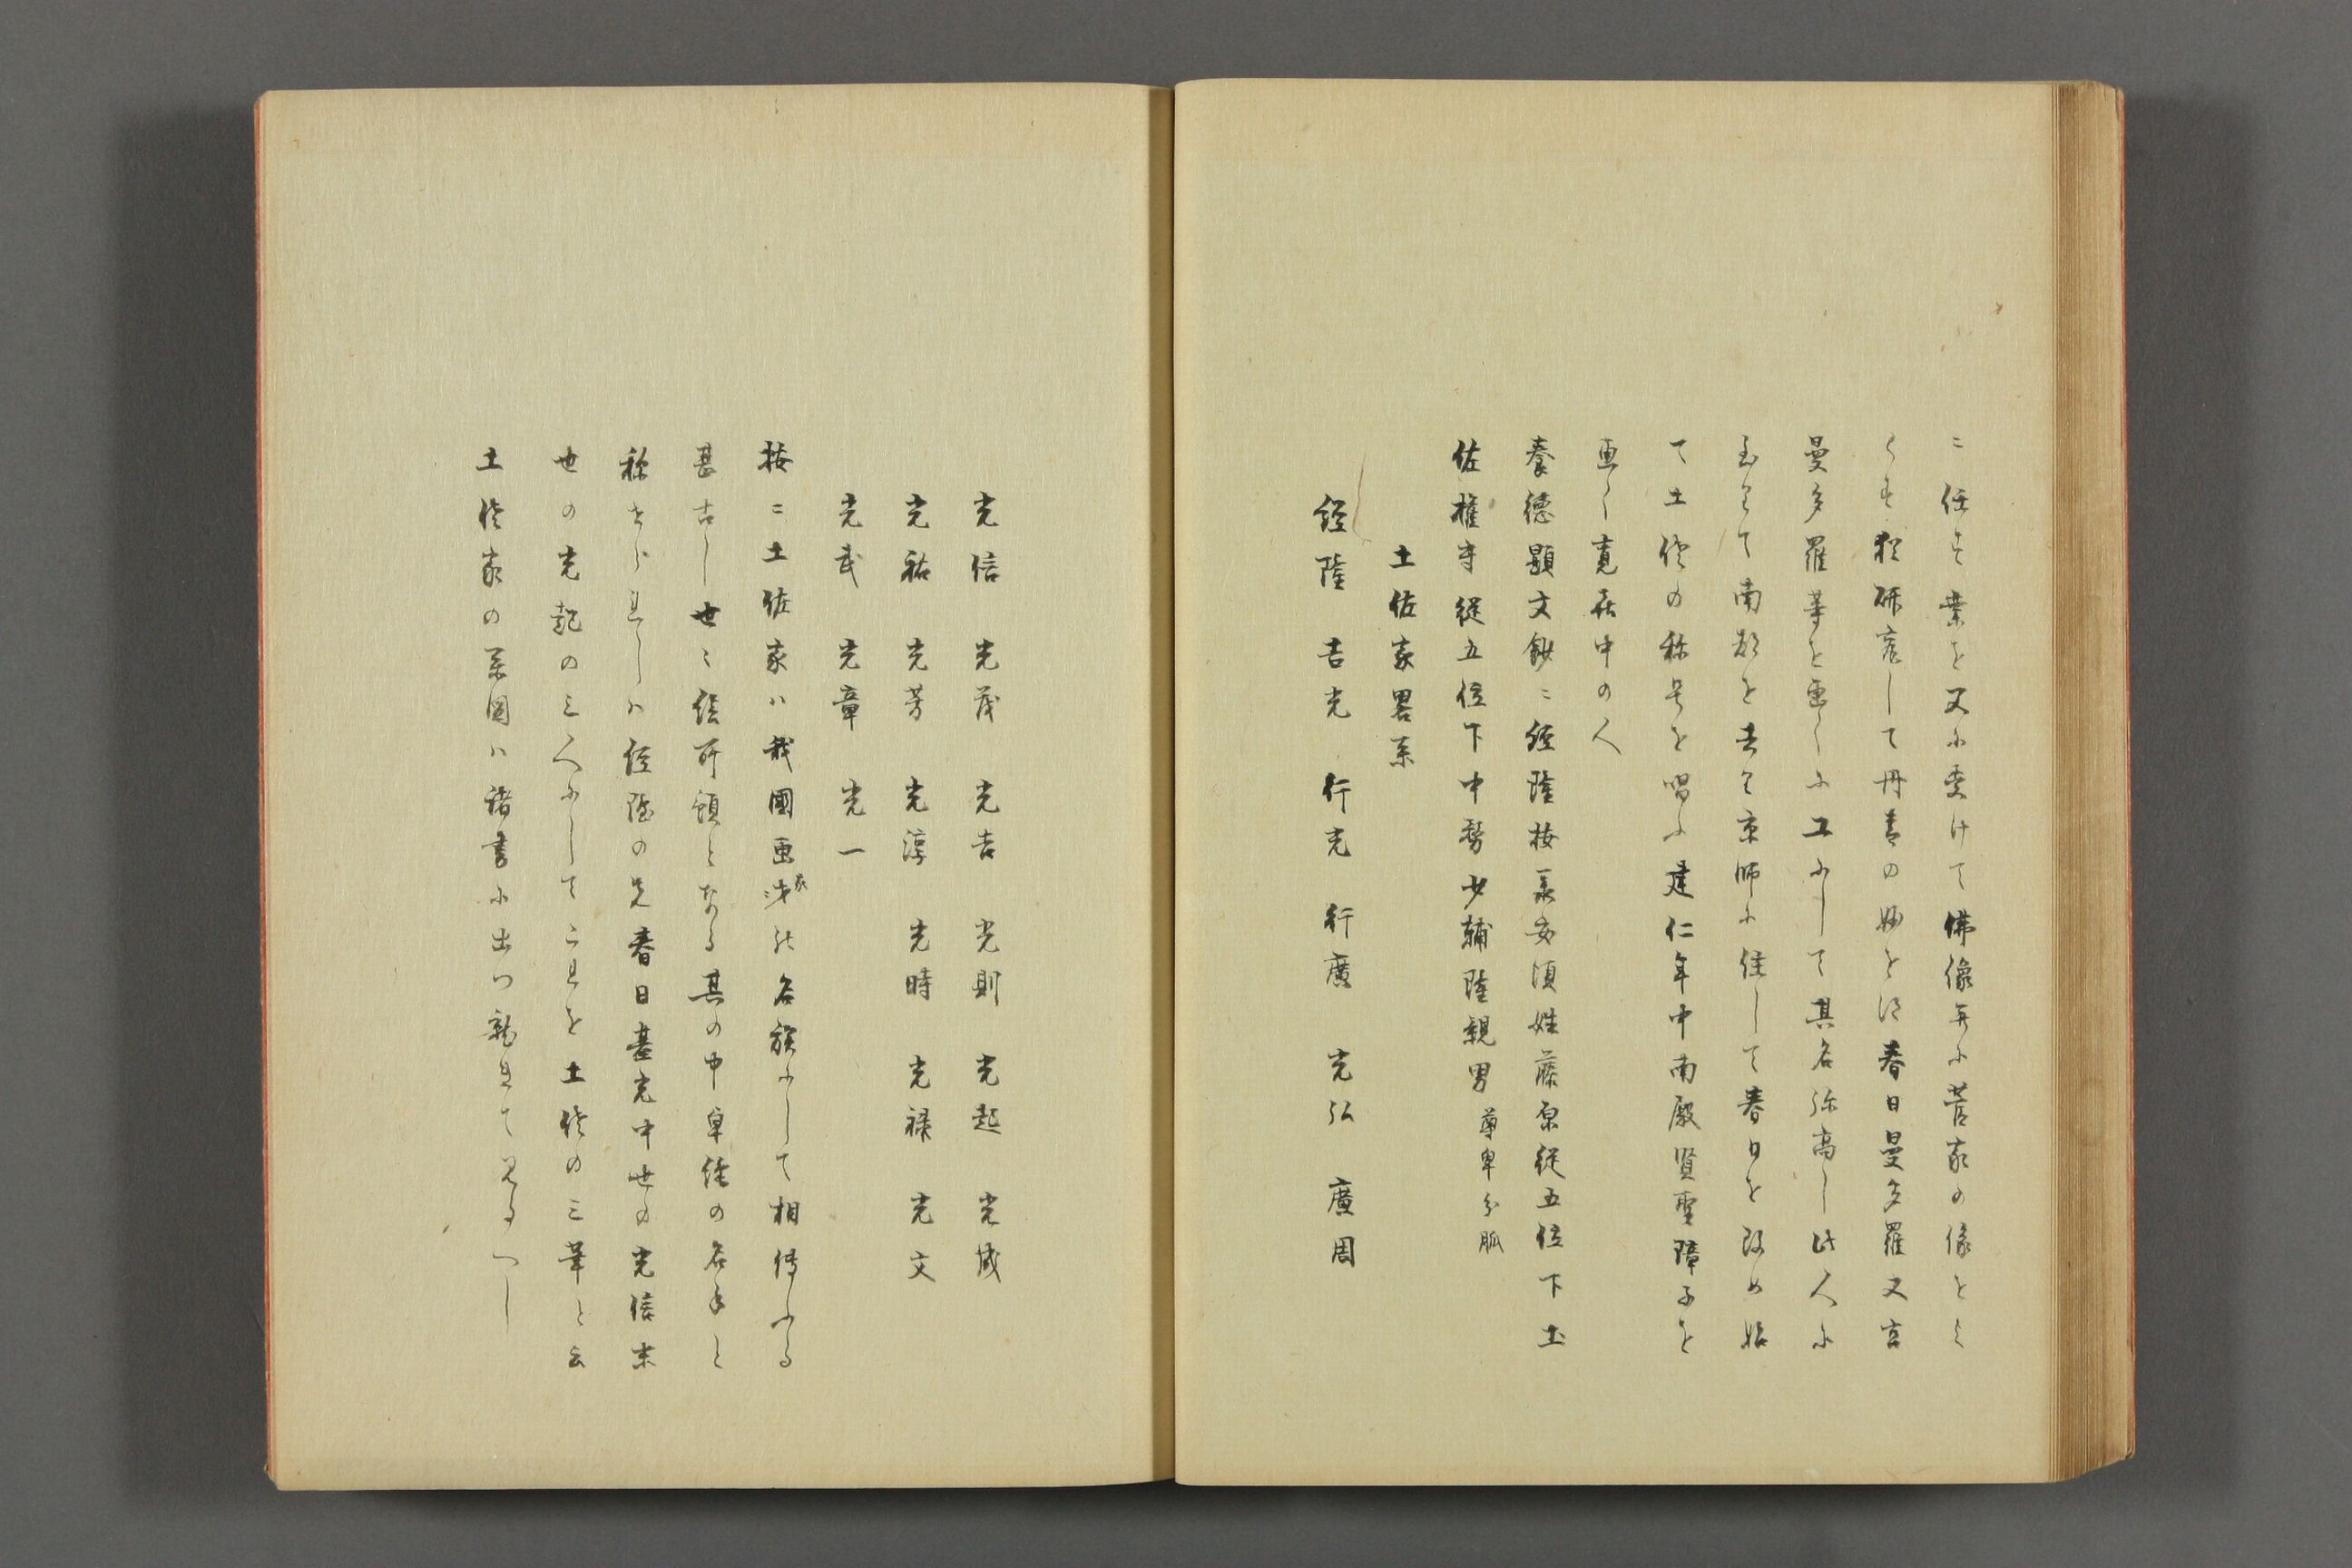 ニ任す業を父に受けて佛像并に菩家の像をと
くす猶研究して丹青の妙を得春日曼多羅又宮
曼多羅等を画くに工にして其名弥高し此人に
至りて南都を去り京師に住して春日を改め始
て土佐の称号を唱ふ建仁年中南殿賢聖障子を
画く寛喜中の人
養徳顕文鈔ニ経隆按長安須姓藤原従五位下土
佐権守従五位下中務少輔隆親男尊卑分脈
土佐家畧系
経隆 吉光 行光 行廣 光弘 廣周
光信 光茂 光吉 光則 光起 光成
光祐 光芳 光淳 光時 光禄 光文
光武 光章 光一
按ニ土佐家ハ我國画家の名族にして相傳ふる
甚古し世々絵所預となる其の中卓絶の名手と
称せられしハ経隆の先春日基光中世の光信末
世の光起の三人にしてこれを土佐の三筆と云
土佐家の系図ハ諸書に出つ就きて見るへし